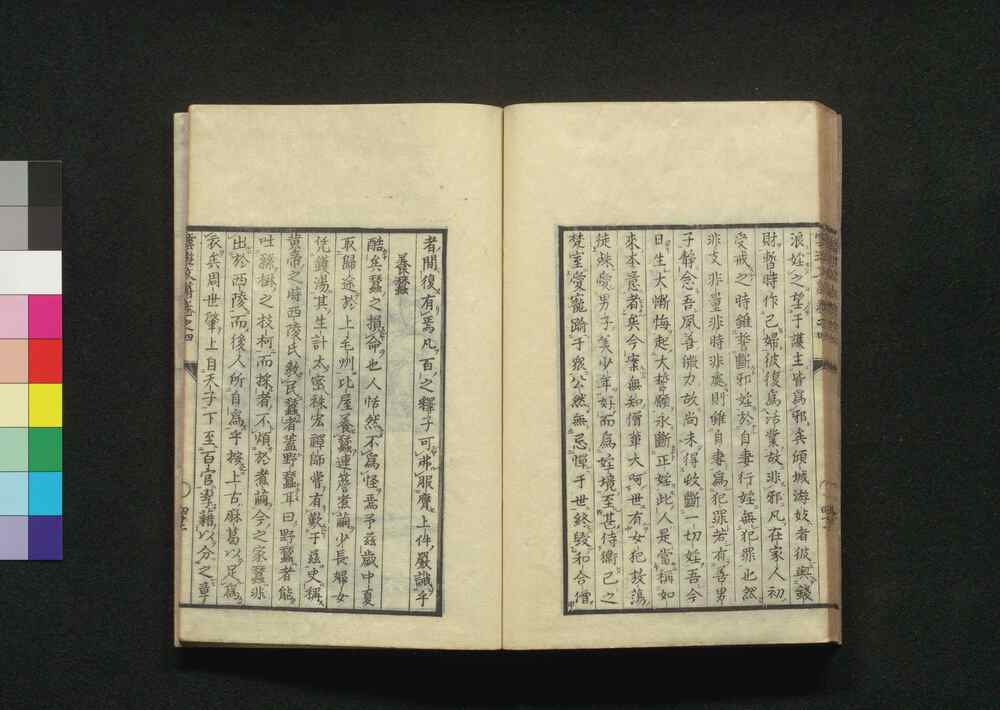 浪婬之望于讓主皆爲邪矣傾城游妓者彼與談
財暫時作己婦彼復爲活業故非邪凡在家人初
受戒之時雖誓斷邪婬於自妻行婬無犯罪也然
非支非量非時非處則雖自妻爲犯罪若有善男
子靜念吾夙善微力故尚未得收斷一切婬吾今
日生大慚悔起大誓願永斷正婬此人是當稱如
來本意者矣今案無知僧輩大呵世有女犯放蕩
徒殊愛男子美少年好而爲婬境至甚侍獨己之
梵室愛寵踰于衆公然無忌憚于世終破和合僧
者間復有焉凡百之釋子可弗服膺上件嚴誡乎
養蠶
酷矣蠶之損命也人恬然不爲怪焉予茲歲中夏
取歸途於上毛州比屋養蠶連簷煮繭少長婦女
凭鑊湯其生計太蜜袾宏禪師嘗有歎于茲史稱
黄帝之時西陵氏教民蠶者蓋野蠶耳曰野蠶者能
吐絲樹之枝柯而採者不煩於煮繭今之家蠶非
出於西陵而後人所自爲乎按上古麻葛以足爲
衣矣周世肇上自天子下至百官 藉以分之章